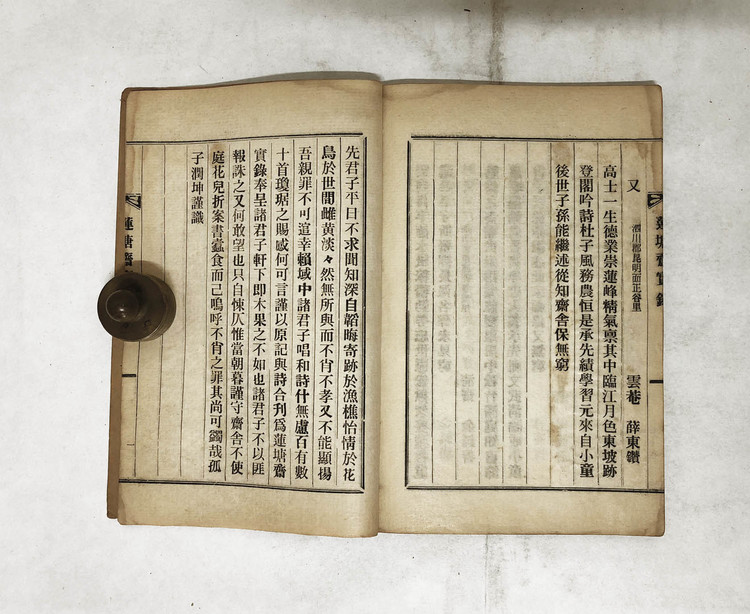 蓮塘齋實錄
又
泗川郡昆明面正谷里
雲菴 薛東鑽
高士一生德業崇蓮峰精氣禀其中臨江月色東坡跡
登閣吟詩杜子風務農恒是承先績學習元來自小童
後世子孫能繼述從知齋舍保無窮
先君子平日不求聞知深自韜晦寄跡於漁樵怡情於花
鳥於世間雌黄淡々然無所與而不肖不孝又不能顯揚
吾親罪不可逭幸賴域中諸君子唱和詩什無慮百有數
十首瓊琚之賜感何可言謹以原記與詩合刊爲蓮塘齋
實錄奉呈諸君子軒下即木果之不如也諸君子不以匪
報誅之又何敢望也只自悚仄惟當朝暮謹守齋舍不使
庭花兒折案書蠹食而己嗚呼不肖之罪其尚可蠲哉孤
子潤坤謹識
蓮塘齋